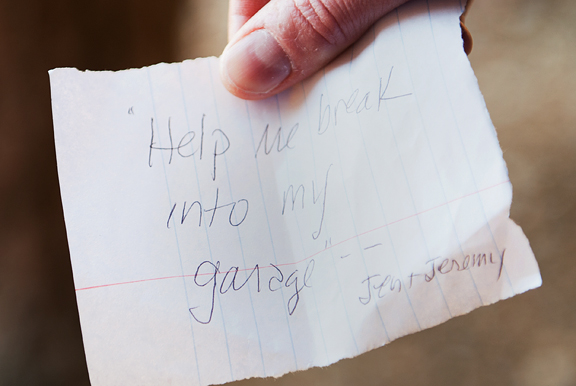 "Help me break
into my
garage" --
Jen + Jeremy